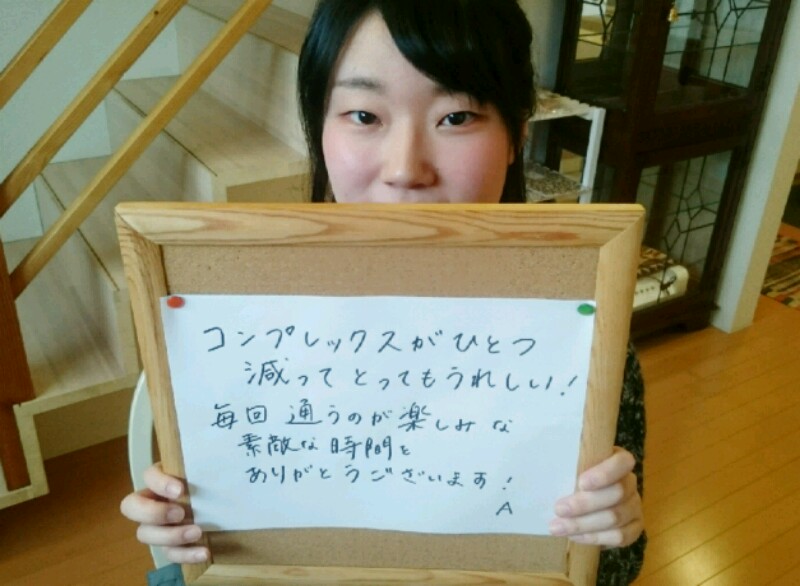 コンプレックスがひとつ
減ってとってもうれしい!
毎回通うのが楽しみな
素敵な時間を
ありがとうございます!
A